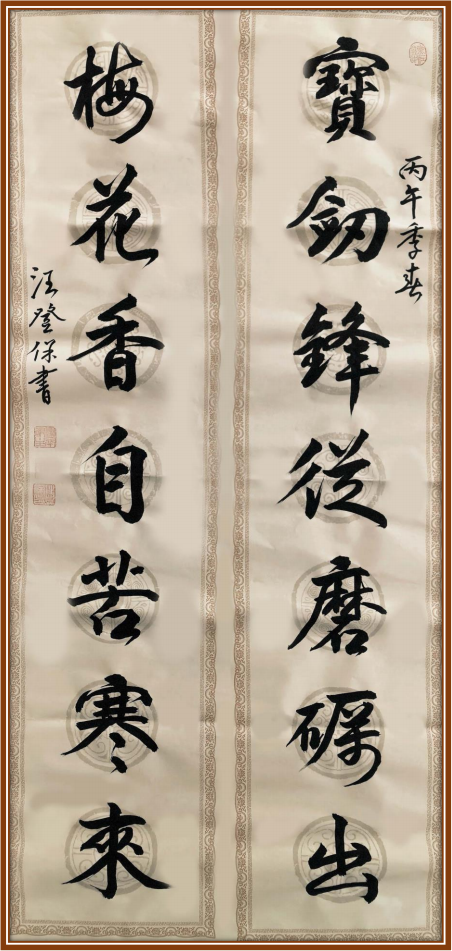 丙午季春
寶劒鋒從磨礪出
梅花香自苦寒來
汪登保書